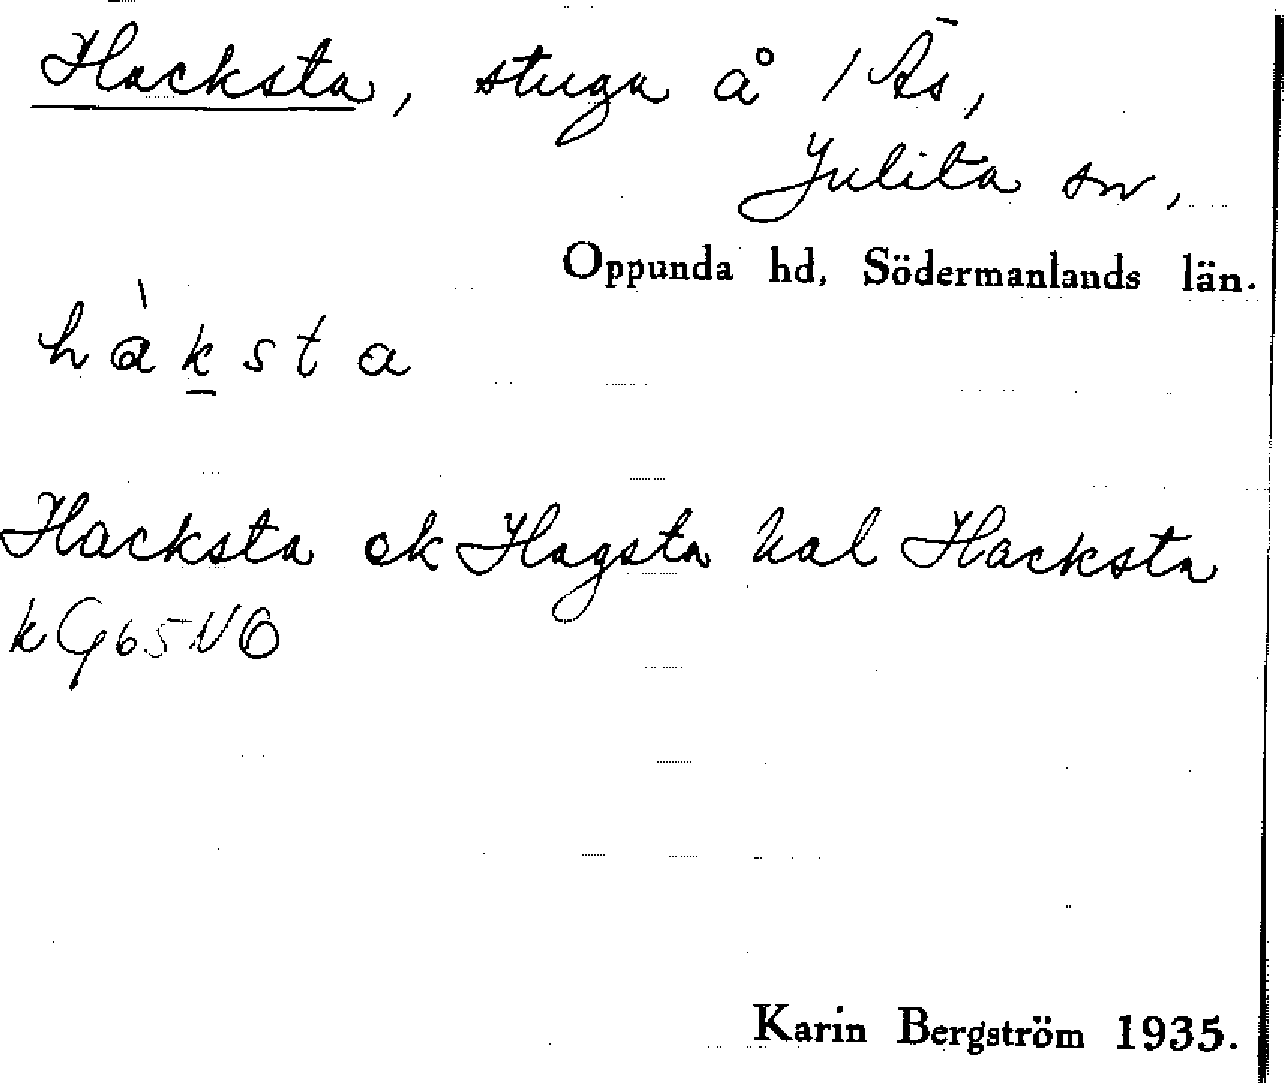 Hacksta, stuga å 1 Ås,
Julita sn,
Oppunda hd, Södermanlands län.
hàksta
Hacksta ek Hagsta hal Hacksta
k G65NO
Karin Bergström 1935.